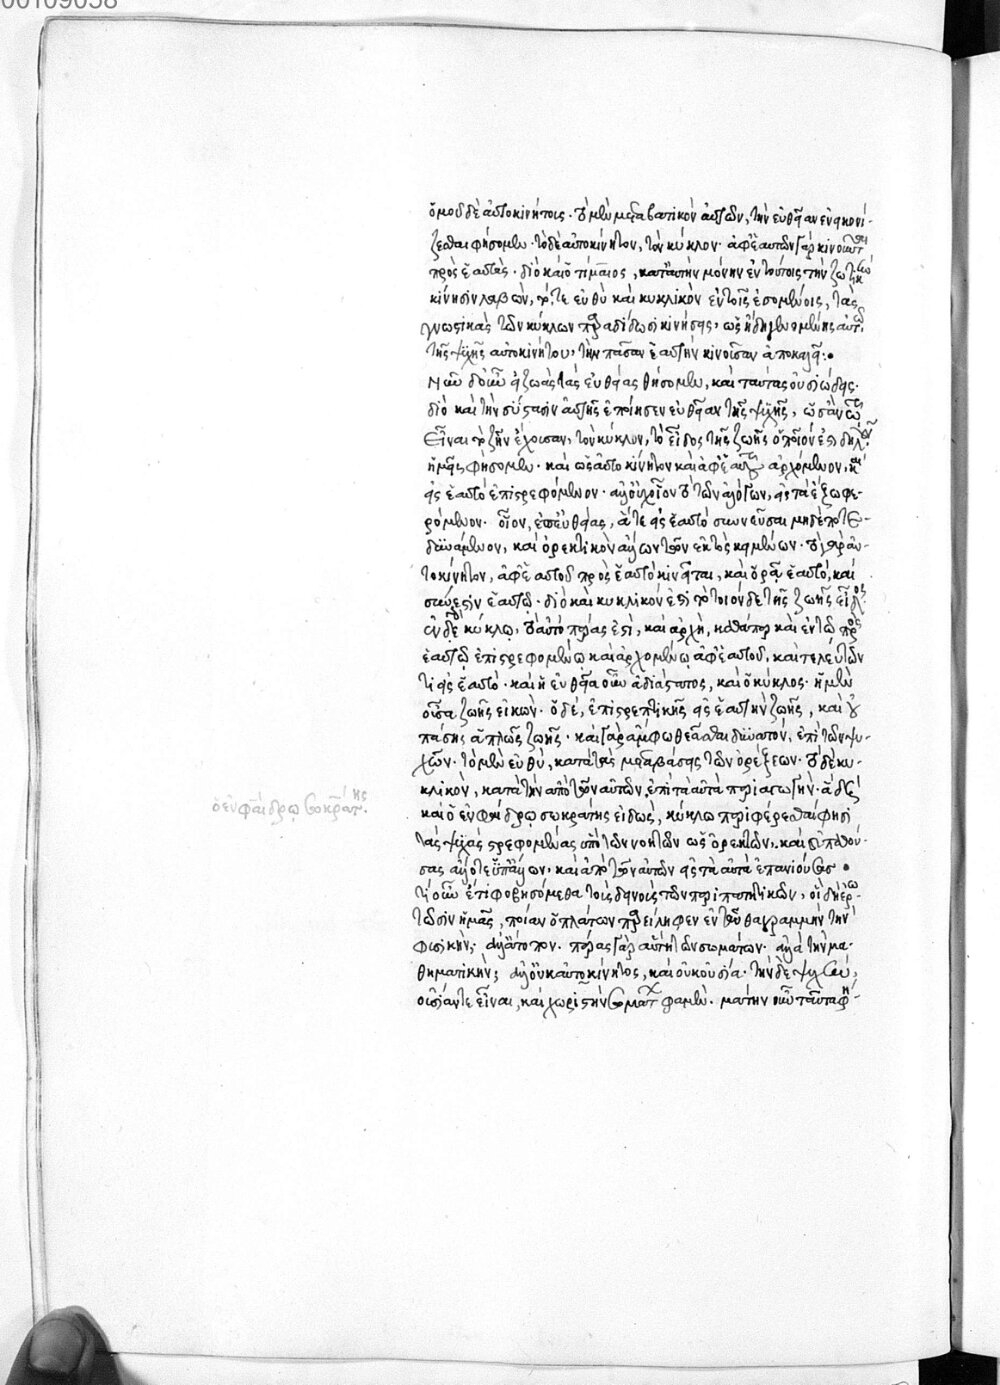 00109058
ὁμοῦ δὲ αὐτοκινήτοις. τὸ μὲν μεταβατικὸν αὐτῶν, τὴν εὐθεῖαν ἐνεικονί-
ζεσθαι φήσομεν. τὸ δὲ αὐτοκίνητον, τὸν κύκλον. ἀφ' ἑαυτῶν γὰρ κινοῦνται
πρὸς ἑαυτάς. διὸ καὶ ὁ τίμαιος, κατ' αὐτὴν μόνην ἐν τούτοις τὴν ζωτικὴν
κίνησιν λαβὼν, τό τε εὐθὺ καὶ κυκλικὸν ἐν τοῖς ἑπομένοις, τὰς
γνωστικὰς τῶν κύκλων παραδίδωσι κινήσεις, ὡς ἤδη γενομένης αὐτῶν
τῆς ψυχῆς αὐτοκινήτου, τὴν πᾶσαν ἑαυτὴν κινοῦσαν ἀποκαλεῖ:
Νῦν δ' οὖν εἰ ζωὰς τὰς εὐθείας θήσομεν, καὶ ταύτας οὐσιώδεις.
διὸ καὶ τὴν σύστασιν αὐτῆς ἐποίησεν εὐθεῖαν τῆς ψυχῆς, ὡς ἂν ἐν τῷ
εἶναι τὸ ζῆν ἔχουσαν, τὸν κύκλον, τὸ εἶδος τῆς ζωῆς ὁποῖόν ἐστι δηλοῦν
ἡμᾶς φήσομεν. καὶ ὡς αὐτοκίνητον καὶ ἀφ' ἑαυτοῦ ἀρχόμενον, καὶ
εἰς ἑαυτὸ ἐπιστρεφόμενον. ἀλλ' οὐχ οἷον τὸ τῶν ἀλόγων, εἰς τὰ ἔξω φε-
ρόμενον. οἷον, ἐπ' εὐθείας, ἅτε εἰς ἑαυτὸ συννεῦσαι μηδέποτε
δυνάμενον, καὶ ὀρεκτικὸν ἀλλ' ὧν τῶν ἐκτὸς κειμένων. τὸ γὰρ αὐ-
τοκίνητον, ἀφ' ἑαυτοῦ πρὸς ἑαυτὸ κινεῖται, καὶ ὁρᾷ ἑαυτό, καὶ
σύνεστιν ἑαυτῷ. διὸ καὶ κυκλικόν ἐστι τὸ τοιόνδε τῆς ζωῆς εἶδος.
ἐν δὲ κύκλῳ, τὸ αὐτὸ πέρας ἐστὶ, καὶ ἀρχὴ, καθάπερ καὶ ἐν τῷ πρὸς
ἑαυτῷ ἐπιστρεφομένῳ καὶ ἀρχομένῳ ἀφ' ἑαυτοῦ, καὶ τελευτῶν
τι εἰς ἑαυτό. καὶ ἡ εὐθεῖα οὖν ἀδιάστατος, καὶ ὁ κύκλος. ἡ μὲν
οὖσα ζωῆς εἰκών. ὁ δὲ, ἐπιστρεπτικῆς εἰς ἑαυτὴν ζωῆς, καὶ οὐ
πάσης ἁπλῶς ζωῆς. καὶ γὰρ ἄμφω θεᾶσθαι δυνατὸν, ἐπὶ τῶν ψυ-
χῶν. τὸ μὲν εὐθὺ, κατὰ τὰς μεταβάσεις τῶν ὀρέξεων. τὸ δὲ κυ-
κλικὸν, κατὰ τὴν ἀπὸ τῶν αὐτῶν ἐπὶ τὰ αὐτὰ περιαγωγήν. ἃ δὴ
καὶ ὁ ἐν φαίδρῳ σωκράτης εἰδὼς, κύκλῳ περιφέρεσθαί φησι
τὰς ψυχὰς στρεφομένας ὑπὸ τῶν νοητῶν ὡς ὀρεκτῶν, καὶ εὐπαθού-
σας ἄλλοτε ἐπ' ἄλλων. καὶ ἀπὸ τῶν αὐτῶν εἰς τὰ αὐτὰ ἐπανιούσας.
τί οὖν ἔτι φοβησόμεθα τοὺς δεινοὺς τῶν περιπατητικῶν, οἳ δὴ ἐρω-
τῶσιν ἡμᾶς, ποίαν ὁ πλάτων παρείληφεν ἐνταῦθα γραμμὴν τὴν
φυσικήν; ἀλλ' ἄτοπον. πέρας γὰρ αὕτη τῶν σωμάτων. ἀλλὰ τὴν μα-
θηματικήν; ἀλλ' οὐκ αὐτοκίνητος, καὶ οὐκ οὐσία. τὴν δὲ ψυχὴν,
οὐσίαν τε εἶναι, καὶ χωριστὴν σωμάτων φαμέν. μάτην οὖν ταῦτα φή-
ὁ ἐν φαίδρῳ σωκράτης.